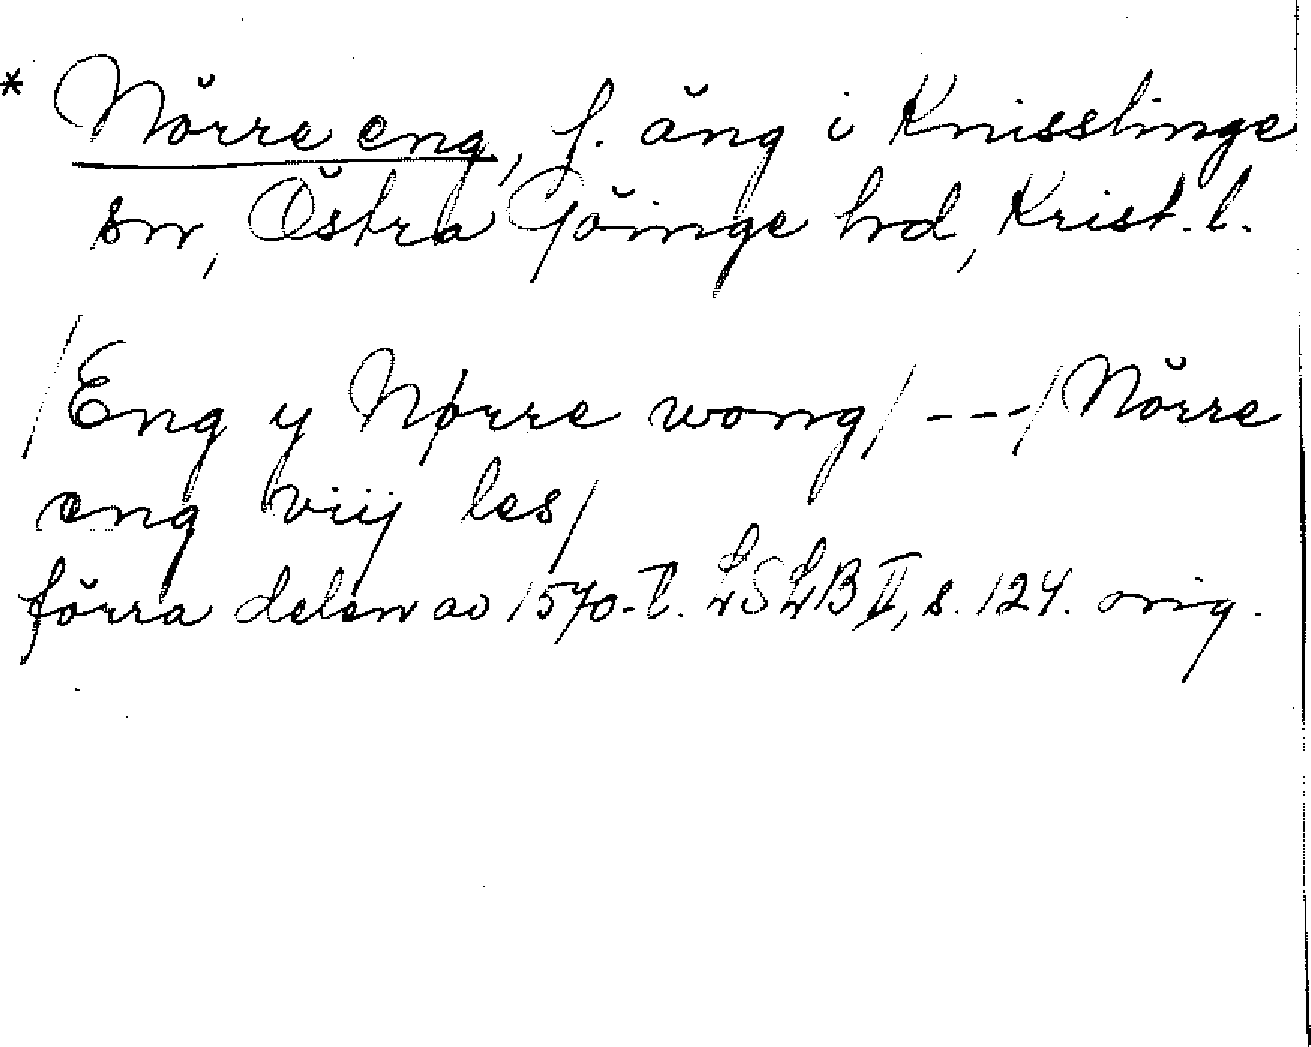 * Nörre eng, f. äng i Knisslinge
sn, Östra Göinge hd, Krist. l.
/Eng y Nørre wong/ --- / Nörre
eng viij les/
förra delen av 1570-t. LSLB II, s. 124. orig.